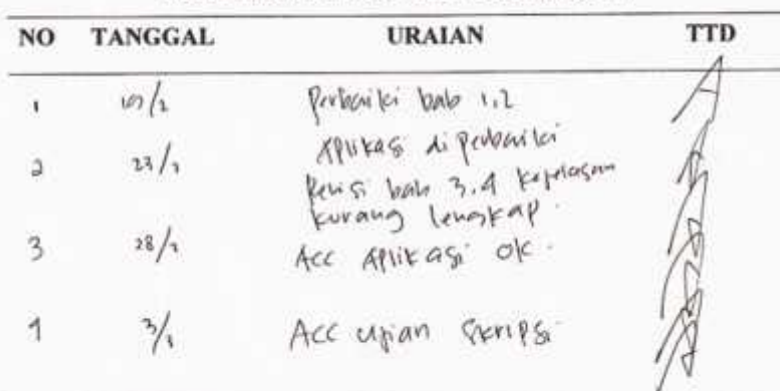 NO TANGGAL URAIAN TTD
1 Perbaiki bab 1,2
Aplikasi diperbaiki
2 23/2 Revisi bab 3.4 kejelasan
kurang lengkap.
3 28/2 Acc Aplikasi ok.
4 Acc ujian Skripsi